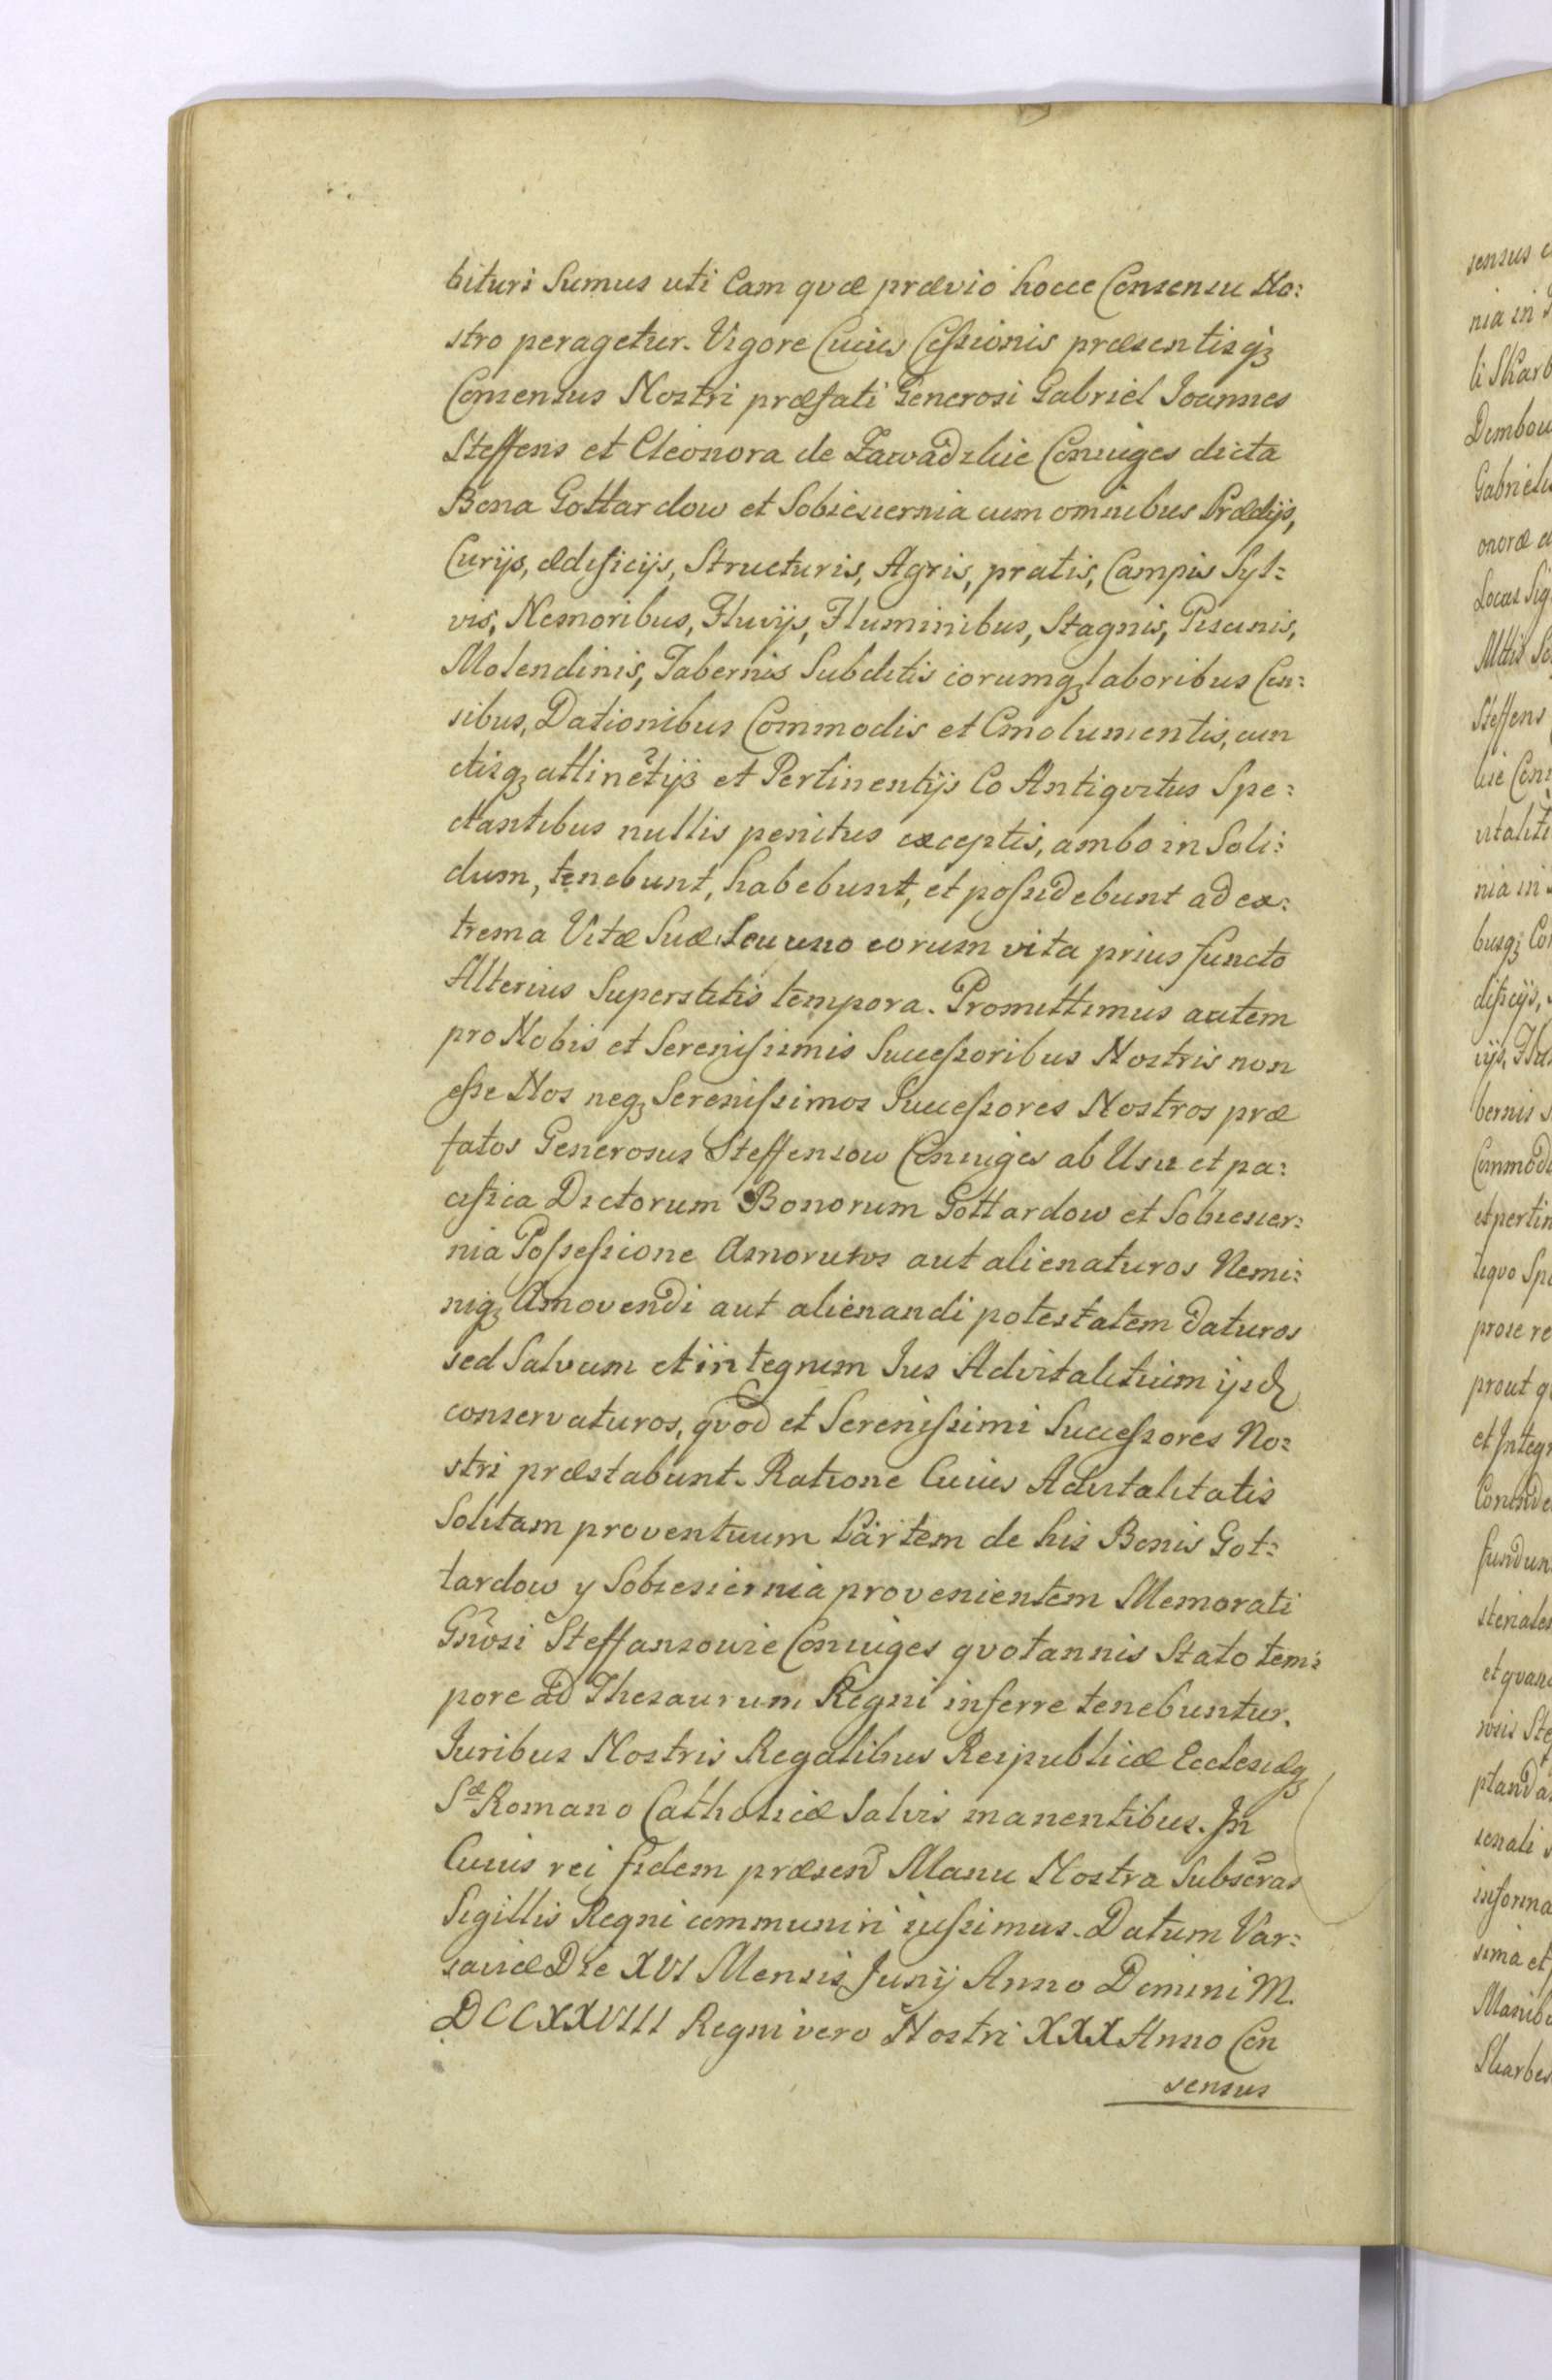 bituri Sumus uti Eam quæ prævio hocce Consensu No:
stro peragetur. Vigore Cuius Cessionis præsentisq3
Consensus Nostri præfati Generosi Gabriel Ioannes
Steffens et Eleonora de Zawadzkie Coniuges dicta
Bona Gottardow et Sobiesiernia cum omnibus Prædijs,
Curijs, ædificijs, Structuris, Agris, pratis, Campis Syl:
vis, Nemoribus, Fluvijs, Fluminibus, Stagnis, Piscinis,
Molendinis, Tabernis Subditis eorumq3 laboribus Cen:
sibus, Dationibus Commodis et Emolumentis, cun
ctisq3 attinētijs et Pertinentijs Eo Antiqvitus Spe:
ctantibus nullis penitus exceptis, ambo in Soli:
dum, tenebunt, habebunt, et possidebunt ad ex:
trema Vitæ Suæ Seu uno eorum vita prius functo
Alterius Superstitis tempora. Promittimus autem
pro Nobis et Serenissimis Successoribus Nostris non
esse Nos neq3 Serenissimos Successores Nostros præ
fatos Generosus Steffensow Coniuges ab Usu et pa:
cifica Dictorum Bonorum Gottardow et Sobiesier:
nia Possessione Amoruros aut alienaturos Nemi:
niq3 Amovendi aut alienandi potestatem daturos
sed Salvum et integrum Ius Advitalitium ijsd
conservaturos, qvod et Serenissimi Successores No:
stri præstabunt. Ratione Cuius Advitalitatis
Solitam proventuum Partem de his Bonis Got:
tardow y Sobiesiernia provenientem Memorati
Gñosi Steffansowie Coniuges qvotannis Stato tem:
pore ad Thesaurum Regni inferre tenebuntur.
Iuribus Nostris Regalibus Reipublicæ Ecclesiæq3
Sæ Romano Catholicæ Salvis manentibus. In
Cuius rei fidem præsen Manu Nostra Subscras
Sigillis Regni communiri iussimus. Datum Var:
saviæ Die XVI Mensis Junij Anno Domini M.
DCCXXVIII Regni vero Nostri XXX Anno Con
sensus
sensus
nia in
li Skarb
Dembow
Gabrielis
onoræ
Locus Sig
Steffens
utaliti
nia in
busq3 Co
dificijs,
bernis S
Commod
et pertin
tiquo Spe
prose re
prout q
et Integr
fundun
steriales
et quan
senali
informa
sima et
Manib
Skarbe